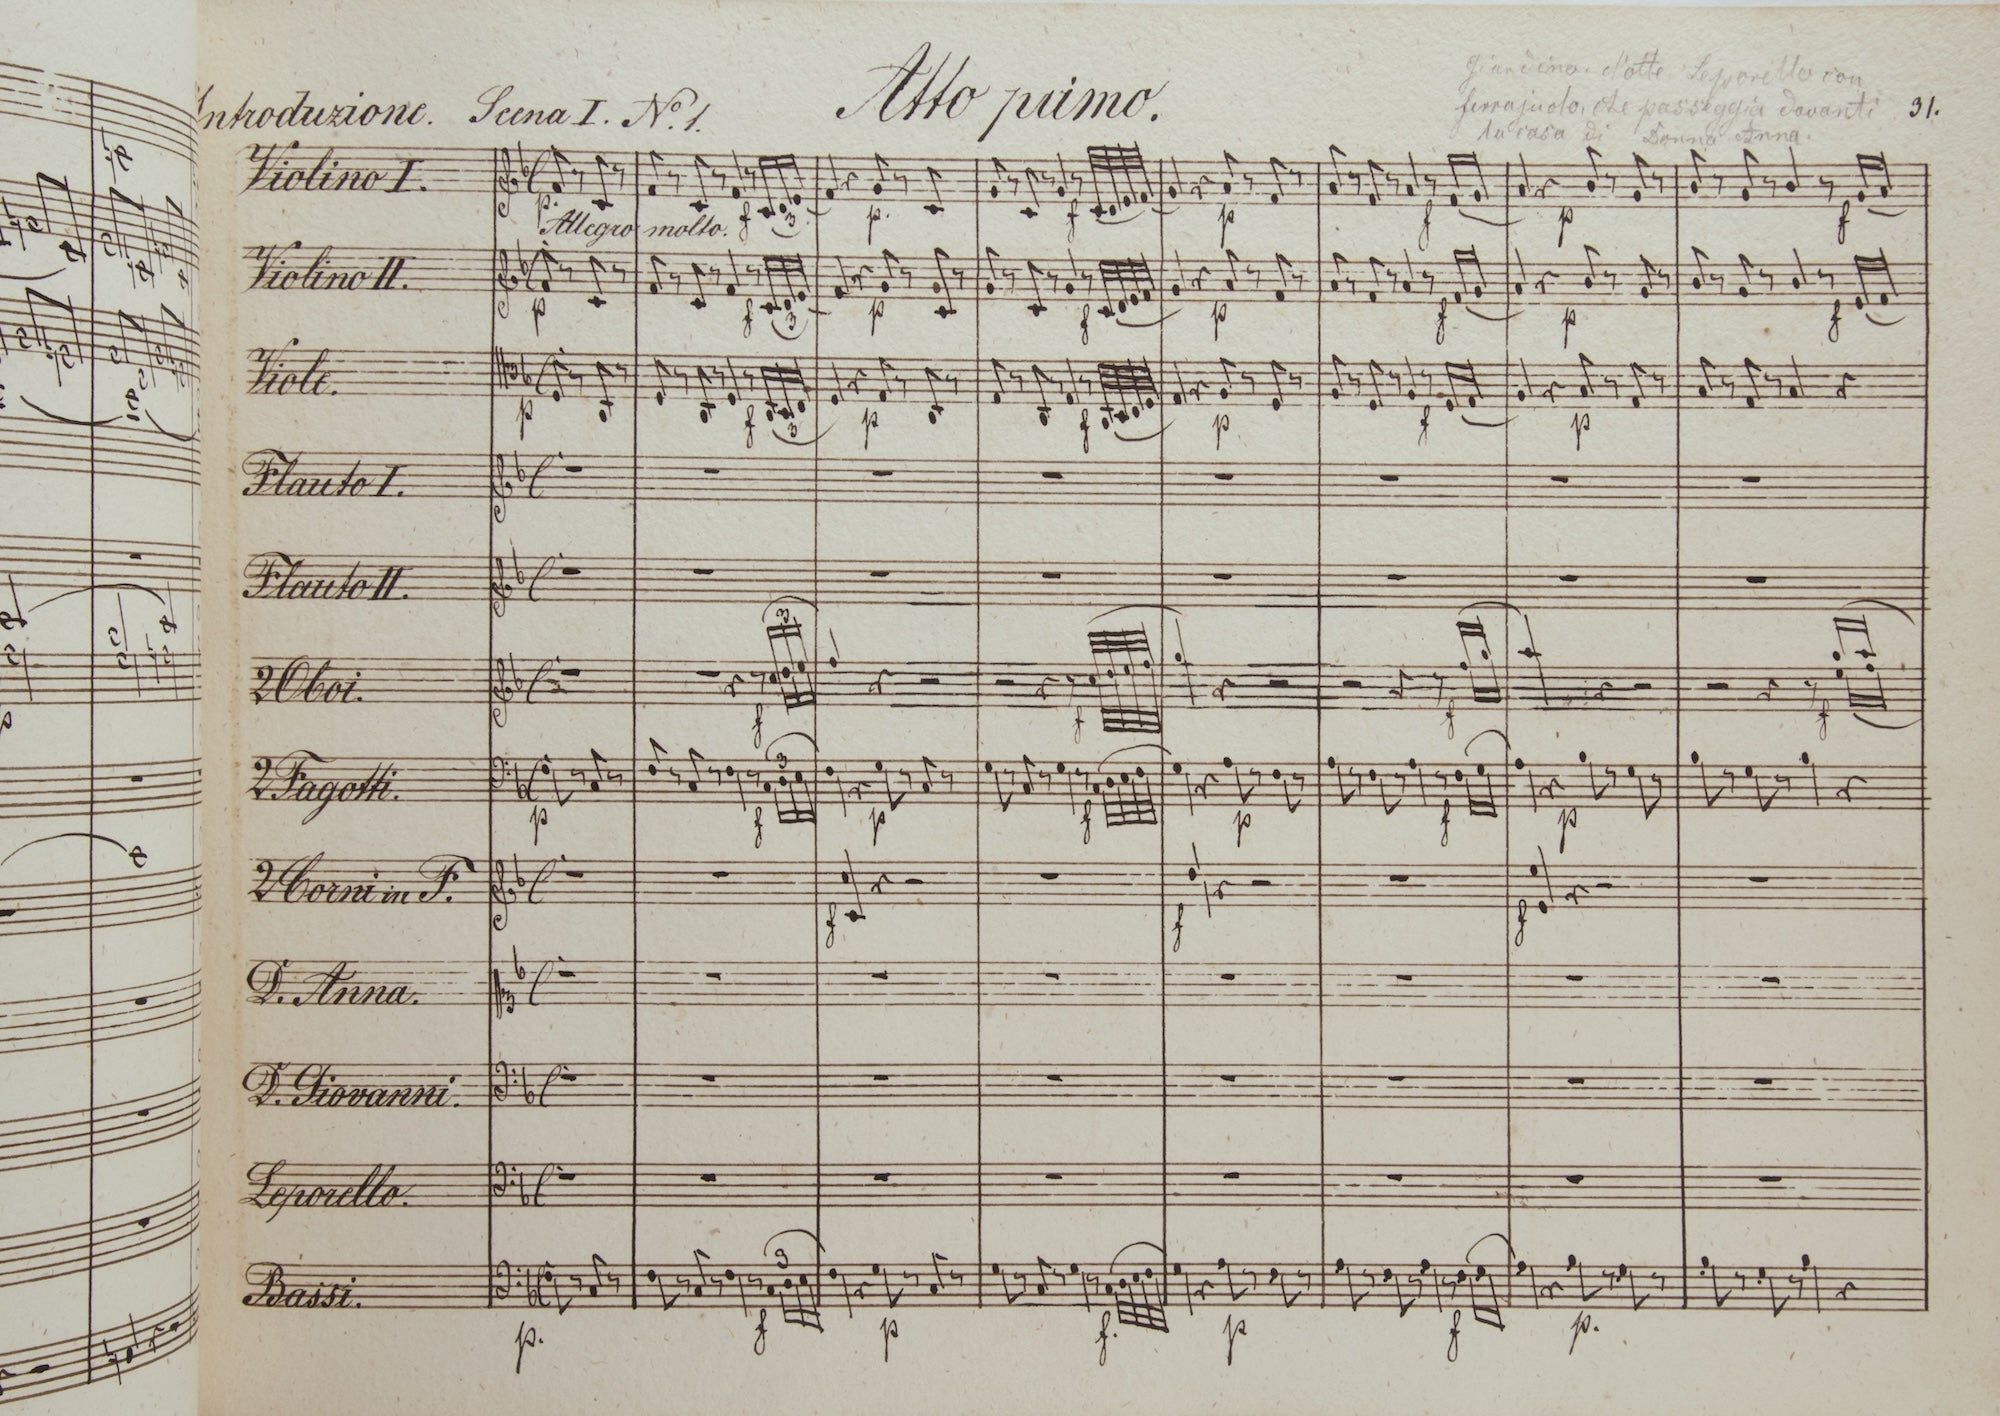 Introduzione. Scena I. No. 1. Atto primo.
Giardino. Notte. Leporello con
ferrajuolo, che passeggia davanti
la casa di Donna Anna.
31.
Violino I.
p. f 3 p. f p f p f
Allegro molto.
Violino II.
p f 3 p f p f p f
Viole.
p f 3 p f p f p
Flauto I.
Flauto II.
3
2 Oboi.
f f f f
2 Fagotti.
3
p f p f p f p
2 Corni in F.
f f f
D. Anna.
D. Giovanni.
Leporello.
Bassi.
3
p. f p f. p f p.